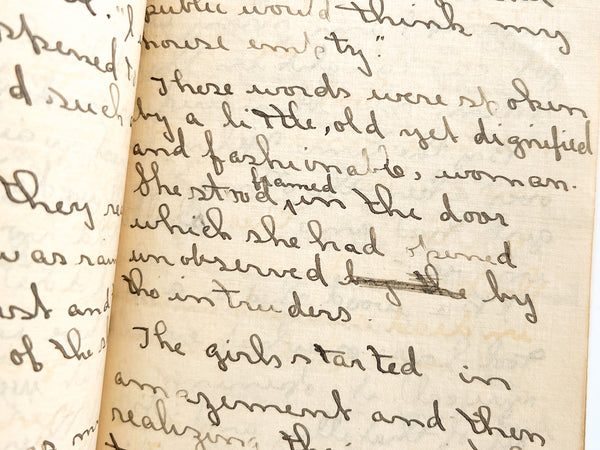 ." "l
public would think my
spened
house empty."
d such
These words were spoken
by a little, old yet dignified
and fashionable, woman.
they
She stood framed in the door
which she had opened
was rain
unobserved by the by
tho intruders.
ust and
of the s
The girls started in
amazement and then
realizing